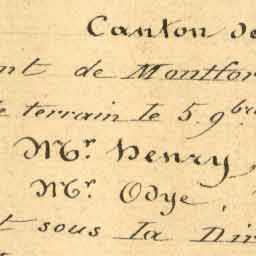 Canton de
nt de Montfor
e terrain le 5 9bre
Mr. Henry,
Mr. Odye,
t sous la Dir